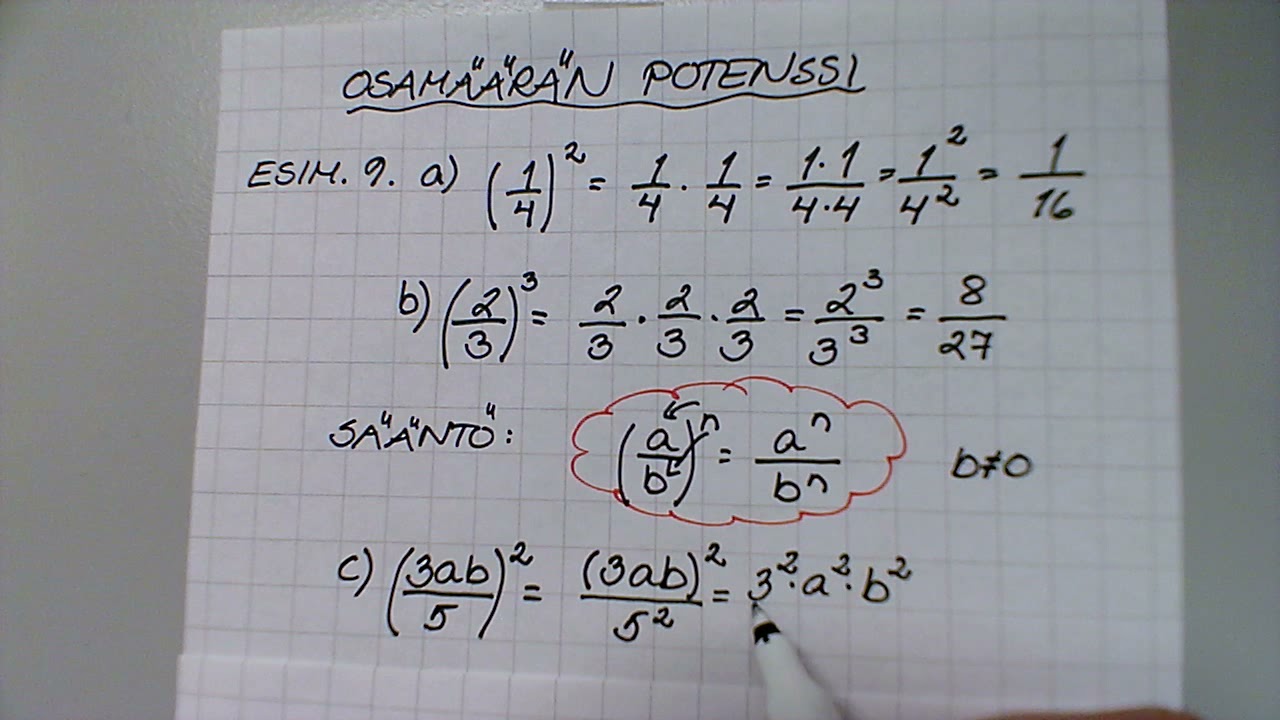 OSAMÄÄRÄN POTENSSI
ESIM. 9. a) (1/4)² = 1/4 · 1/4 = 1·1/4·4 = 1²/4² = 1/16
b) (2/3)³ = 2/3 · 2/3 · 2/3 = 2³/3³ = 8/27
SÄÄNTÖ: (a/b)ⁿ = aⁿ/bⁿ b≠0
c) (3ab/5)² = (3ab)²/5² = 3²·a²·b²